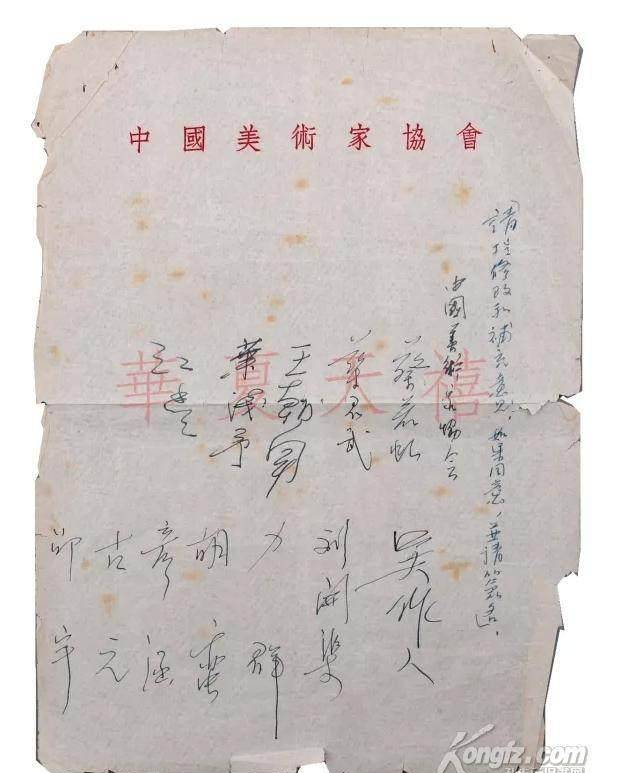 中國美術家協會
請提修改和補充意見，如果同意，並請簽名。
中國美術家協会
蔡若虹
華君武
王朝聞
葉淺予
江豐
吴作人
刘開渠
力群
胡蛮
彦涵
古元
邵宇
華夏天禧
Kongfz.com